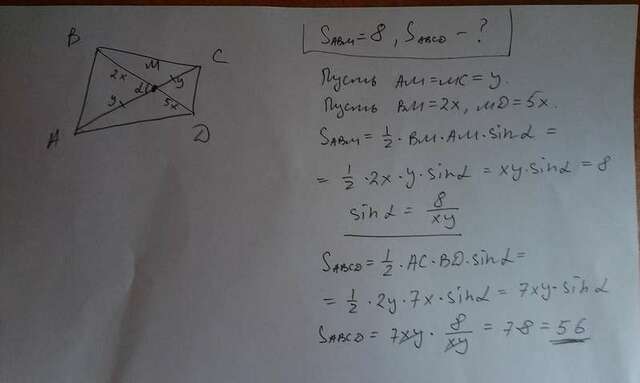 B
C
M
2x
α
y
y
5x
A
D
S_ABM = 8, S_ABCD - ?
Пусть AM = MC = y.
Пусть BM = 2x, MD = 5x.
S_ABM = 1/2 · BM · AM · sin α =
= 1/2 · 2x · y · sin α = xy · sin α = 8
sin α = 8/xy
S_ABCD = 1/2 · AC · BD · sin α =
= 1/2 · 2y · 7x · sin α = 7xy · sin α
S_ABCD = 7xy · 8/xy = 7·8 = 56